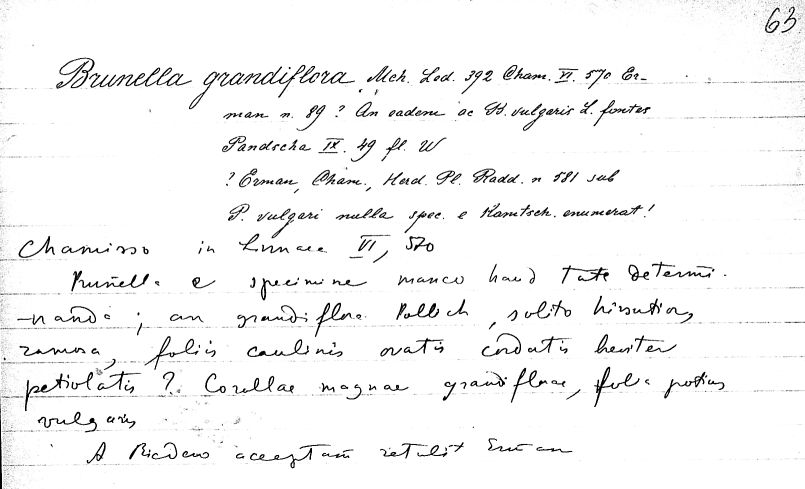 63
Brunella grandiflora Mch. Led. 392 Cham. VI. 570 Er-
man n. 89 ? An eadem ac B. vulgaris L. fontes
Pandscha IX. 49 fl. W
? Erman, Cham., Herd. Pl. Radd. n 581 sub
P. vulgari nulla spec. e Kamtsch. enumerat!
Chamisso in Linnaea VI, 570
Prunella e specimine manco haud tute determi-
-nanda ; an grandiflora Pollich, solito hirsutior,
ramosa, foliis caulinis ovatis cordatis breviter
petiolatis ? Corollae magnae grandiflorae, folia potius
vulgaris
A acceptam retulit Erman